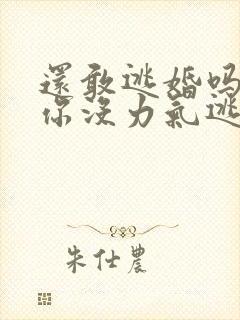 還敢逃婚吗
你没力氣逃
朱仕農